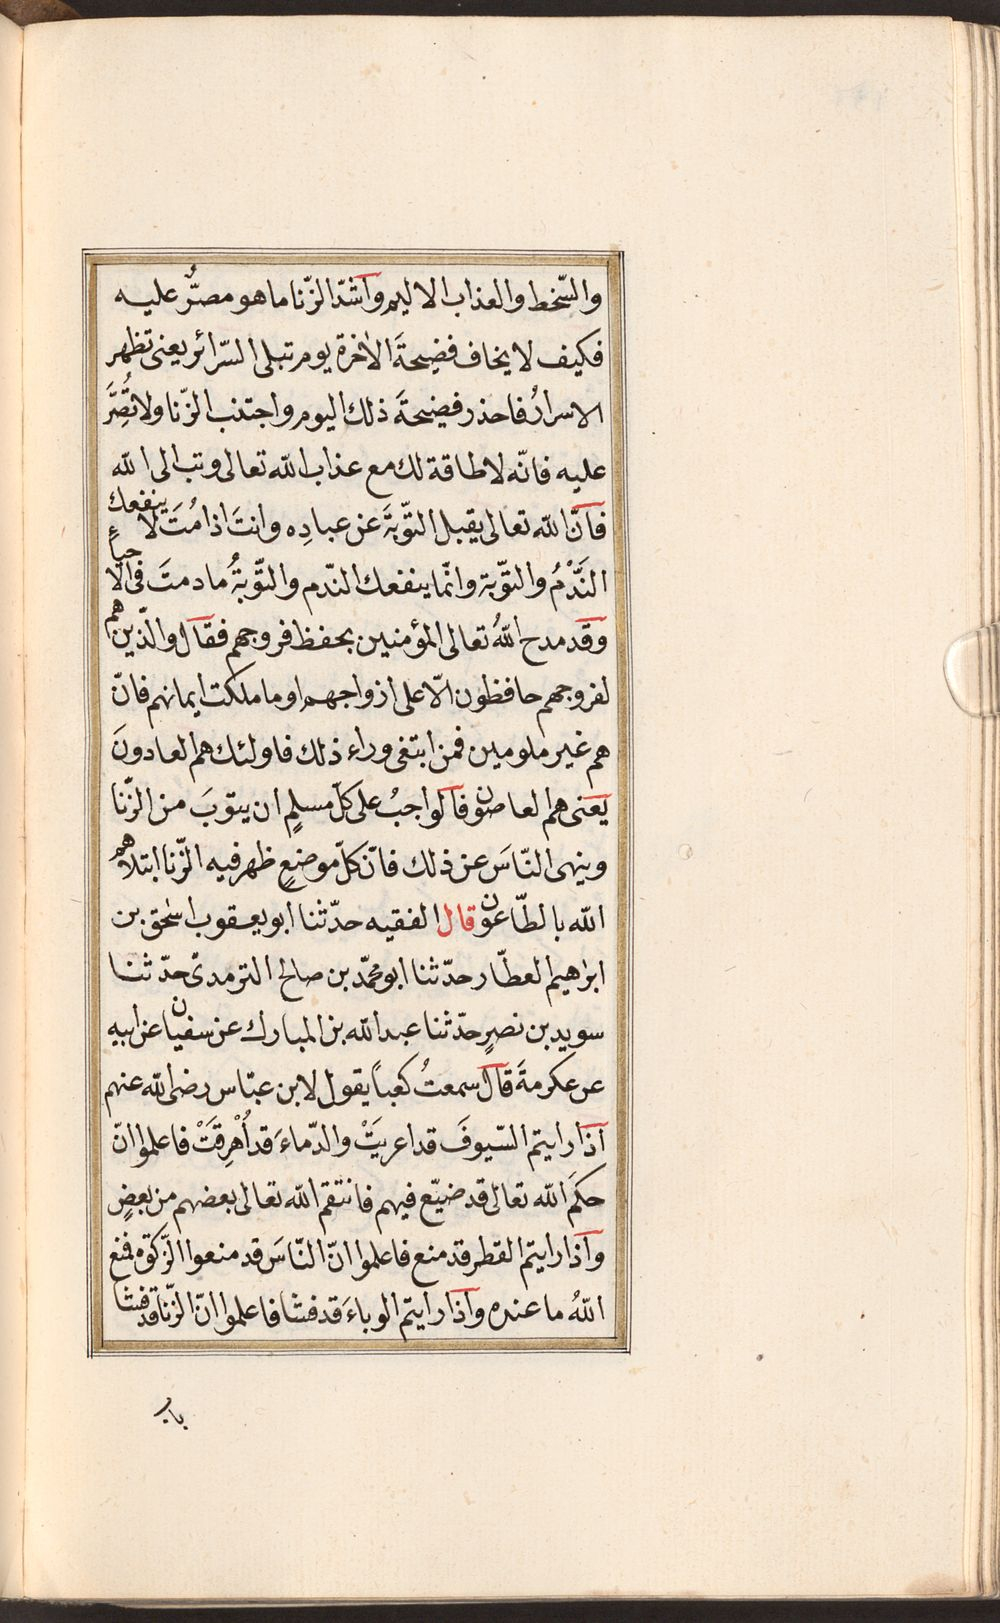 والسّخط والعذاب الاليم واشدّ الزّنا ما هو مصرٌّ عليه
فكيف لا يخاف فضيحةَ الاخرة يوم تبلى السّرائر يعنى تظهر
الاسرارُ فاحذر فضيحةَ ذلك اليوم واجتنب الزّنا ولا تُصِرَّ
عليه فانّه لا طاقة لك مع عذاب الله تعالى وتب الى الله
فانّ الله تعالى يقبل التّوبةَ عن عبادِه وانتَ اذا مُتَ لا ينفعك
النَّدْمُ والتّوبة وانّما ينفعك النّدم والتّوبةُ ما دمتَ فى الاحياءِ
وقد مدح اللهُ تعالى المؤمنين بحفظ فروجهم فقال والّذين هم
لفروجهم حافظون الّا على ازواجهم او ما ملكت ايمانهم فانّ
هم غير ملومين فمن ابتغى وراء ذلك فاولئك هم العادونَ
يعنى هم العاصون فالواجبُ على كلّ مسلمٍ ان يتوبَ من الزّنا
وينهى النّاسَ عن ذلك فانّ كلّ موضعٍ ظهر فيه الزّنا ابتلاهم
الله بالطّاعون قال الفقيه حدّثنا ابو يعقوب اسحٰق بن
ابرٰهيم العطّار حدّثنا ابو محمّد بن صالح الترمدىّ حدّثنا
سويد بن نصرٍ حدّثنا عبد الله بن المبارك عن سفيان عن ابيه
عن عكرمةَ قال سمعتُ كعباً يقول لابن عبّاس رضى الله عنهم
اذا رايتم السّيوفَ قد اعريَتْ والدّماءَ قد اُهْرِقَتْ فاعلموا انّ
حكَم الله تعالى قد ضيّع فيهم فانتقم الله تعالى بعضهم من بعضٍ
واذا رايتم القطر قد منع فاعلموا انّ النّاسَ قد منعوا الزّكوة فمنع
اللهُ ما عنده واذا رايتم الوباءَ قد فشا فاعلموا انّ الزّنا قد فشا
باب